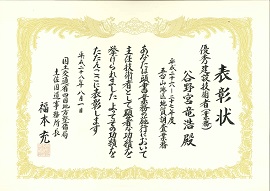 表彰状
優秀建設技術者(業務)
平成二十六~二十七年度
谷野宮竜浩 殿
あなたは頭書業務の施行において
主任技術者として顕著な功績を
挙げられました よってその功績を
たたえここに表彰します
平成二十八年八月一日
国土交通省四国地方整備局
福本 充